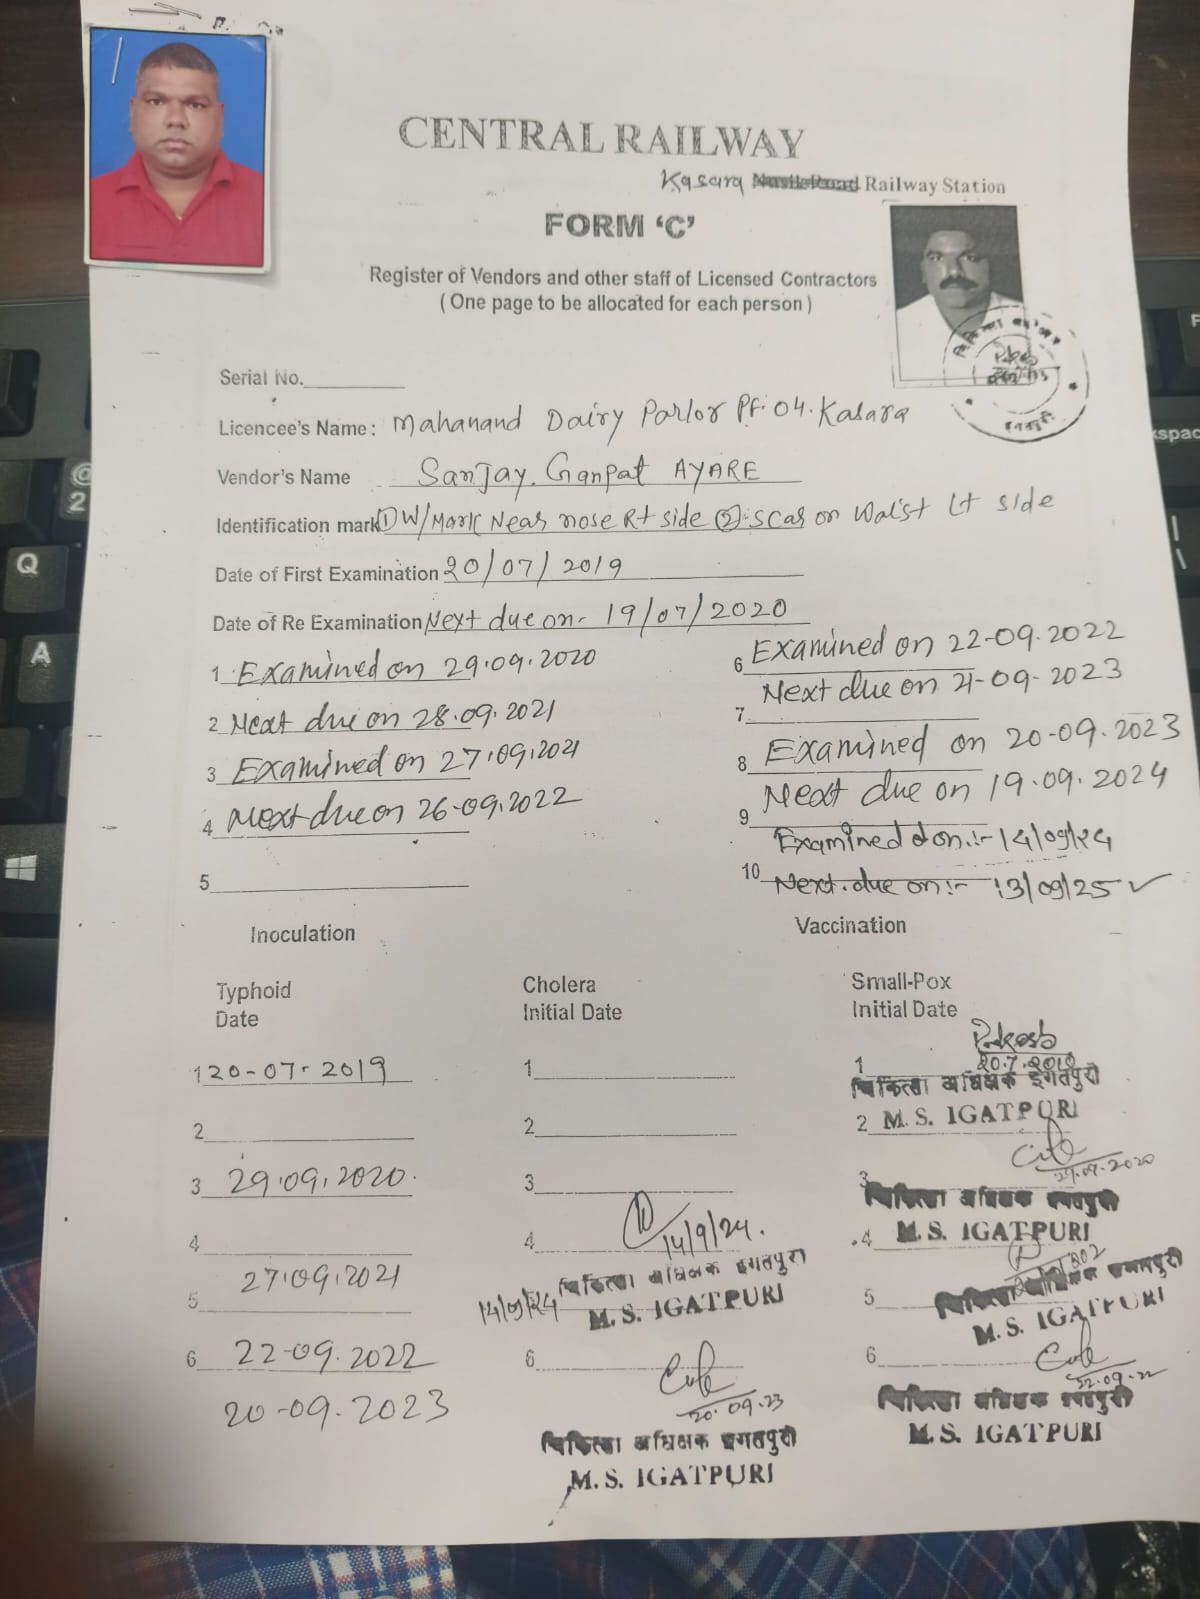 CENTRAL RAILWAY
Kasara Railway Station
FORM ‘C’
Register of Vendors and other staff of Licensed Contractors
( One page to be allocated for each person )
Serial No.
Licencee's Name : Mahanand Dairy Parlor Pf. 04. Kasara
Vendor's Name Sanjay. Ganpat AYARE
Identification mark ① W/Mark Near nose Rt side ②. scar on Waist Lt side
Date of First Examination 20/07/2019
Date of Re Examination Next due on- 19/07/2020
1 Examined on 29.09.2020
2 Next due on 28.09.2021
3 Examined on 27.09.2021
4 Next due on 26-09.2022
5
6 Examined on 22-09.2022
7 Next due on 21-09-2023
8 Examined on 20-09.2023
9 Next due on 19.09.2024
Examined on :- 14/09/24
10 Next due on :- 13/09/25 ✓
Inoculation
Vaccination
Typhoid
Date
1 20-07-2019
2
3 29.09.2020.
4
27.09.2021
5
6 22-09.2022
20-09.2023
Cholera
Initial Date
1
2
3
4 14/9/24.
चिकित्सा अधिक्षक इगतपुरी
14/09/24 M. S. IGATPURI
6
20.09.23
चिकित्सा अधिक्षक इगतपुरी
M. S. IGATPURI
Small-Pox
Initial Date
1
चिकित्सा अधिक्षक इगतपुरी
2 M. S. IGATPURI
3
चिकित्सा अधिक्षक इगतपुरी
4 M. S. IGATPURI
5 चिकित्सा अधिक्षक इगतपुरी
M. S. IGATPURI
6
22-09-22
चिकित्सा अधिक्षक इगतपुरी
M. S. IGATPURI